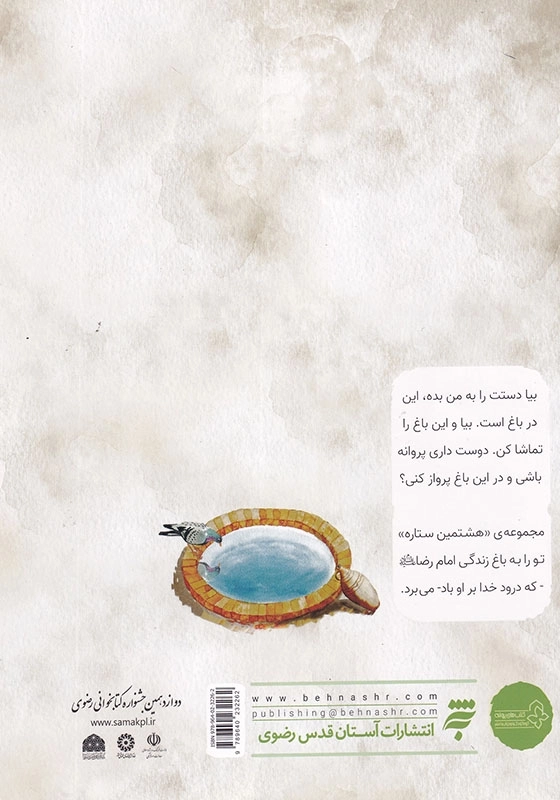 بیا دستت را به من بده، این
در باغ است. بیا و این باغ را
تماشا کن. دوست داری پروانه
باشی و در این باغ پرواز کنی؟
مجموعه‌ی «هشتمین ستاره»
تو را به باغ زندگی امام رضا
- که درود خدا بر او باد- می‌برد.
www.behnashr.com
publishing@behnashr.com
انتشارات آستان قدس رضوی
به‌نشر
ISBN 978-964-02-3226-2
9 789640 232262
دوازدهمین جشنواره کتابخوانی رضوی
www.samakpl.ir